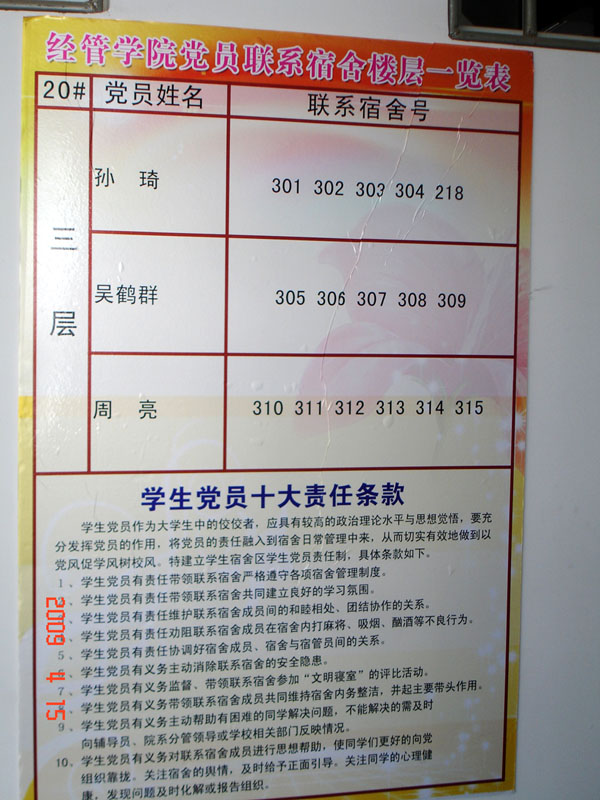 经管学院党员联系宿舍楼层一览表
20# 党员姓名 联系宿舍号
三层
孙 琦 301 302 303 304 218
吴鹤群 305 306 307 308 309
周 亮 310 311 312 313 314 315
学生党员十大责任条款
学生党员作为大学生中的佼佼者，应具有较高的政治理论水平与思想觉悟，要充
分发挥党员的作用，将党员的责任融入到宿舍日常管理中来，从而切实有效地做到以
党风促学风树校风。特建立学生宿舍区学生党员责任制，具体条款如下。
1、学生党员有责任带领联系宿舍严格遵守各项宿舍管理制度。
2、学生党员有责任带领联系宿舍共同建立良好的学习氛围。
3、学生党员有责任维护联系宿舍成员间的和睦相处、团结协作的关系。
4、学生党员有责任劝阻联系宿舍成员在宿舍内打麻将、吸烟、酗酒等不良行为。
5、学生党员有责任协调好宿舍成员、宿舍与宿管员间的关系。
6、学生党员有义务主动消除联系宿舍的安全隐患。
7、学生党员有义务监督、带领联系宿舍参加“文明寝室”的评比活动。
8、学生党员有义务带领联系宿舍成员共同维持宿舍内务整洁，并起主要带头作用。
9、学生党员有义务主动帮助有困难的同学解决问题，不能解决的需及时
向辅导员、院系分管领导或学校相关部门反映情况。
10、学生党员有义务对联系宿舍成员进行思想帮助，使同学们更好的向党
组织靠拢。关注宿舍的舆情，及时给予正面引导。关注同学的心理健
康，发现问题及时化解或报告组织。
2009 4 15